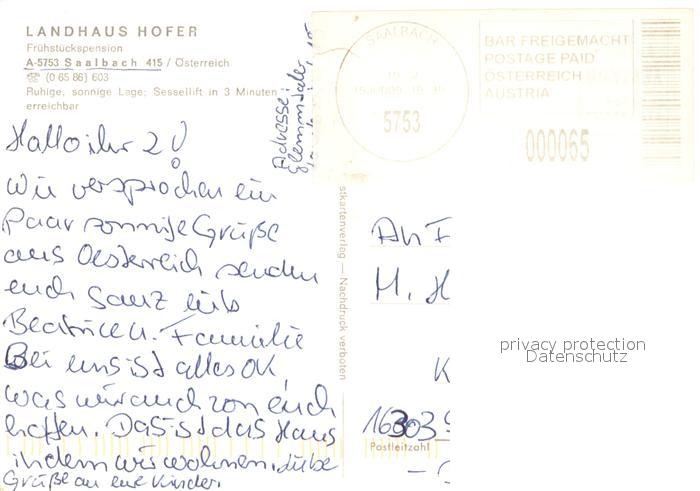 LANDHAUS HOFER
Frühstückspension
A-5753 Saalbach 415 / Österreich
☎ (0 65 86) 603
Ruhige, sonnige Lage; Sessellift in 3 Minuten
erreichbar
Adresse:
Hallo ihr 2!
Wie versprochen ein
Paar sonnige Grüße
aus Oesterreich senden
euch Ganz lieb
Beatrice u. Familie
Bei uns ist alles OK
was wir auch von euch
hoffen. Das ist das Haus
indem wir wohnen. Liebe
Grüße an eure Kinder.
stkartenverlag — Nachdruck verboten
SAALBACH
5753
BAR FREIGEMACHT
POSTAGE PAID
ÖSTERREICH
AUSTRIA
000065
An F
M. H
privacy protection
Datenschutz
K
16303
Postleitzahl